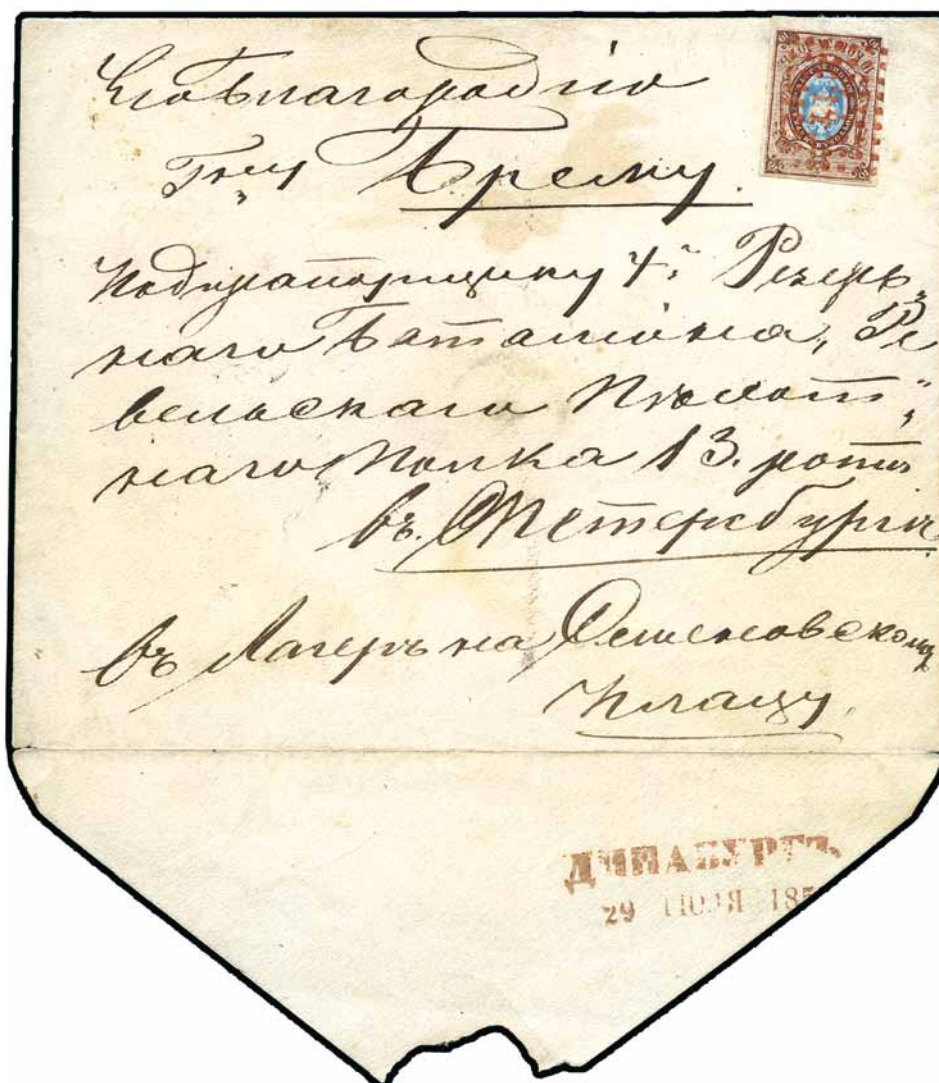 Его Благородію
Гну Брему.
Подпрапорщику 4го Резерв„
наго Баталіона, Ре
вельскаго Пѣхот„
наго Полка 13. роты
въ. СПетербургѣ
въ Лагерь на Семеновскомъ
Плацу.
ДИНАБУРГЪ
29 185